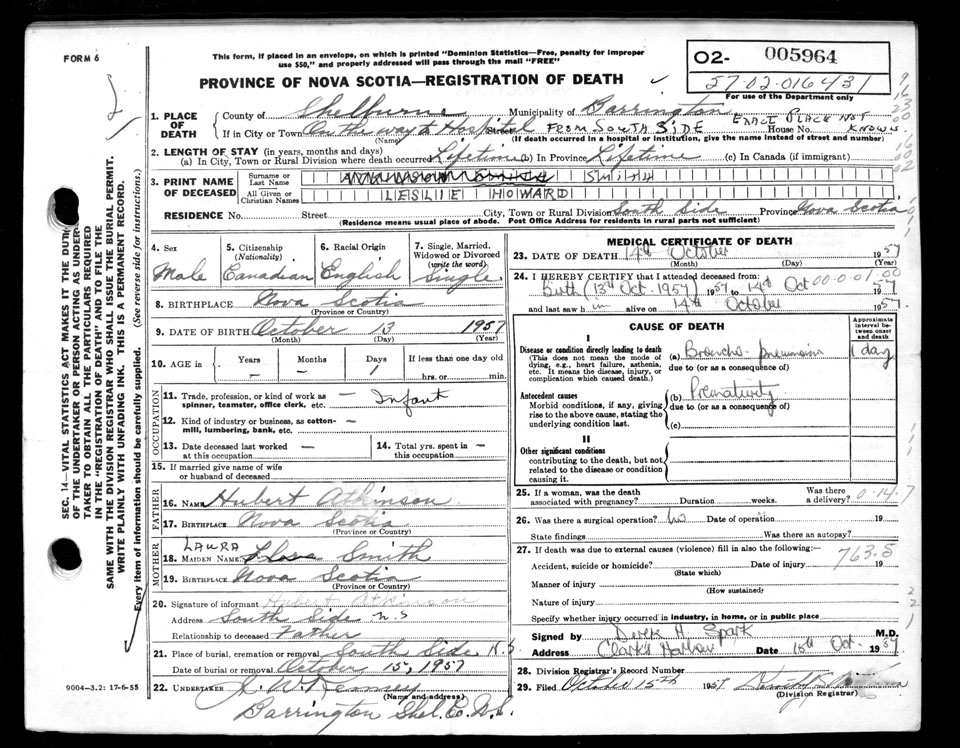 FORM 6
This form, if placed in an envelope, on which is printed "Dominion Statistics—Free, penalty for improper
use $50," and properly addressed will pass through the mail "FREE"
O2- 005964
57-02-016431
For use of the Department only
PROVINCE OF NOVA SCOTIA—REGISTRATION OF DEATH
1. PLACE OF DEATH
County of Shelburne Municipality of Barrington
If in City or Town On the way to Hospital Street FROM SOUTH SIDE House No. EXACT PLACE NOT KNOWN
(Name) (If death occurred in a hospital or institution, give the name instead of street and number)
2. LENGTH OF STAY (in years, months and days)
(a) In City, Town or Rural Division where death occurred Lifetime (b) In Province Lifetime (c) In Canada (if immigrant)
3. PRINT NAME OF DECEASED
Surname or Last Name SMITH
All Given or Christian Names LESLIE HOWARD
RESIDENCE No. Street City, Town or Rural Division South Side Province Nova Scotia
(Residence means usual place of abode. Post Office Address for residents in rural parts not sufficient)
4. Sex Male
5. Citizenship (Nationality) Canadian
6. Racial Origin English
7. Single, Married, Widowed or Divorced (write the word) Single
8. BIRTHPLACE Nova Scotia
(Province or Country)
9. DATE OF BIRTH October 13 1957
(Month) (Day) (Year)
10. AGE in Years – Months – Days 1 If less than one day old hrs. or min.
OCCUPATION
11. Trade, profession, or kind of work as spinner, teamster, office clerk, etc. — Infant
12. Kind of industry or business, as cotton-mill, lumbering, bank, etc. —
13. Date deceased last worked at this occupation —
14. Total yrs. spent in this occupation —
15. If married give name of wife or husband of deceased
FATHER
16. NAME Hubert Atkinson
17. BIRTHPLACE Nova Scotia
(Province or Country)
MOTHER
LAURA
18. MAIDEN NAME Smith
19. BIRTHPLACE Nova Scotia
(Province or Country)
20. Signature of informant Hubert Atkinson
Address South Side N.S
Relationship to deceased Father
21. Place of burial, cremation or removal South Side N.S
Date of burial or removal October 15, 1957
22. UNDERTAKER J. W. Kenney
(Name and address)
Barrington Shel. Co. N.S.
9004—3.2: 17-6-55
MEDICAL CERTIFICATE OF DEATH
23. DATE OF DEATH 14th October 1957
(Month) (Day) (Year)
24. I HEREBY CERTIFY that I attended deceased from:
Birth (13th Oct. 1957) 1957 to 14th Oct 1957
00-0-01-00
and last saw h im alive on 14th October 1957
CAUSE OF DEATH
Approximate interval between onset and death
I
Disease or condition directly leading to death
(This does not mean the mode of dying, e.g., heart failure, asthenia, etc. It means the disease, injury, or complication which caused death.)
(a) Broncho-pneumonia 1 day
due to (or as a consequence of)
Antecedent causes
Morbid conditions, if any, giving rise to the above cause, stating the underlying condition last.
(b) Prematurity
due to (or as a consequence of)
(c)
II
Other significant conditions
contributing to the death, but not related to the disease or condition causing it.
25. If a woman, was the death associated with pregnancy? Duration weeks. Was there a delivery?
0-14.7
26. Was there a surgical operation? No Date of operation 19
State findings Was there an autopsy?
27. If death was due to external causes (violence) fill in also the following:—
763.5
Accident, suicide or homicide? Date of injury 19
(State which)
Manner of injury
(How sustained)
Nature of injury
Specify whether injury occurred in industry, in home, or in public place
Signed by Derek H. Spark M.D.
Address Clark's Harbour Date 15th Oct. 1957
28. Division Registrar's Record Number
29. Filed October 15th 1957
(Division Registrar)
SEC. 14—VITAL STATISTICS ACT MAKES IT THE DUTY
OF THE UNDERTAKER OR PERSON ACTING AS UNDER-
TAKER TO OBTAIN ALL THE PARTICULARS REQUIRED
IN THE "REGISTRATION OF DEATH" AND TO FILE THE
SAME WITH THE DIVISION REGISTRAR WHO SHALL ISSUE THE BURIAL PERMIT.
WRITE PLAINLY WITH UNFADING INK. THIS IS A PERMANENT RECORD.
Every item of information should be carefully supplied. (See reverse side for instructions.)